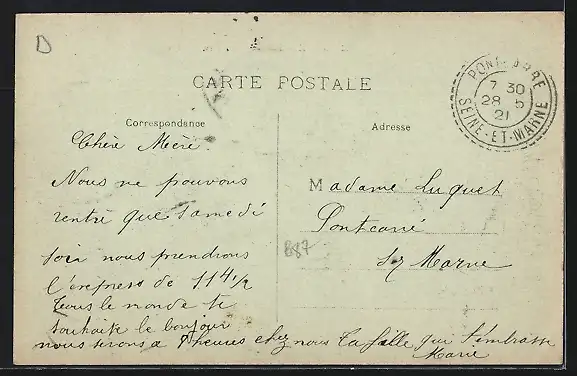 D
CARTE POSTALE
Correspondance
Adresse
PONTCARRÉ
7 30
28 - 5
21
SEINE-ET-MARNE
Chère Mère.
Nous ne pouvons
rentré que samedi
soir nous prendrons
l'express de 11 4 1/2
Tous le monde te
souhaite le bonjour
nous serons a 8 heures chez nous Ta fille qui t'embrasse
Marie
Madame Luquet
Pontcarré
S/ Marne
B87